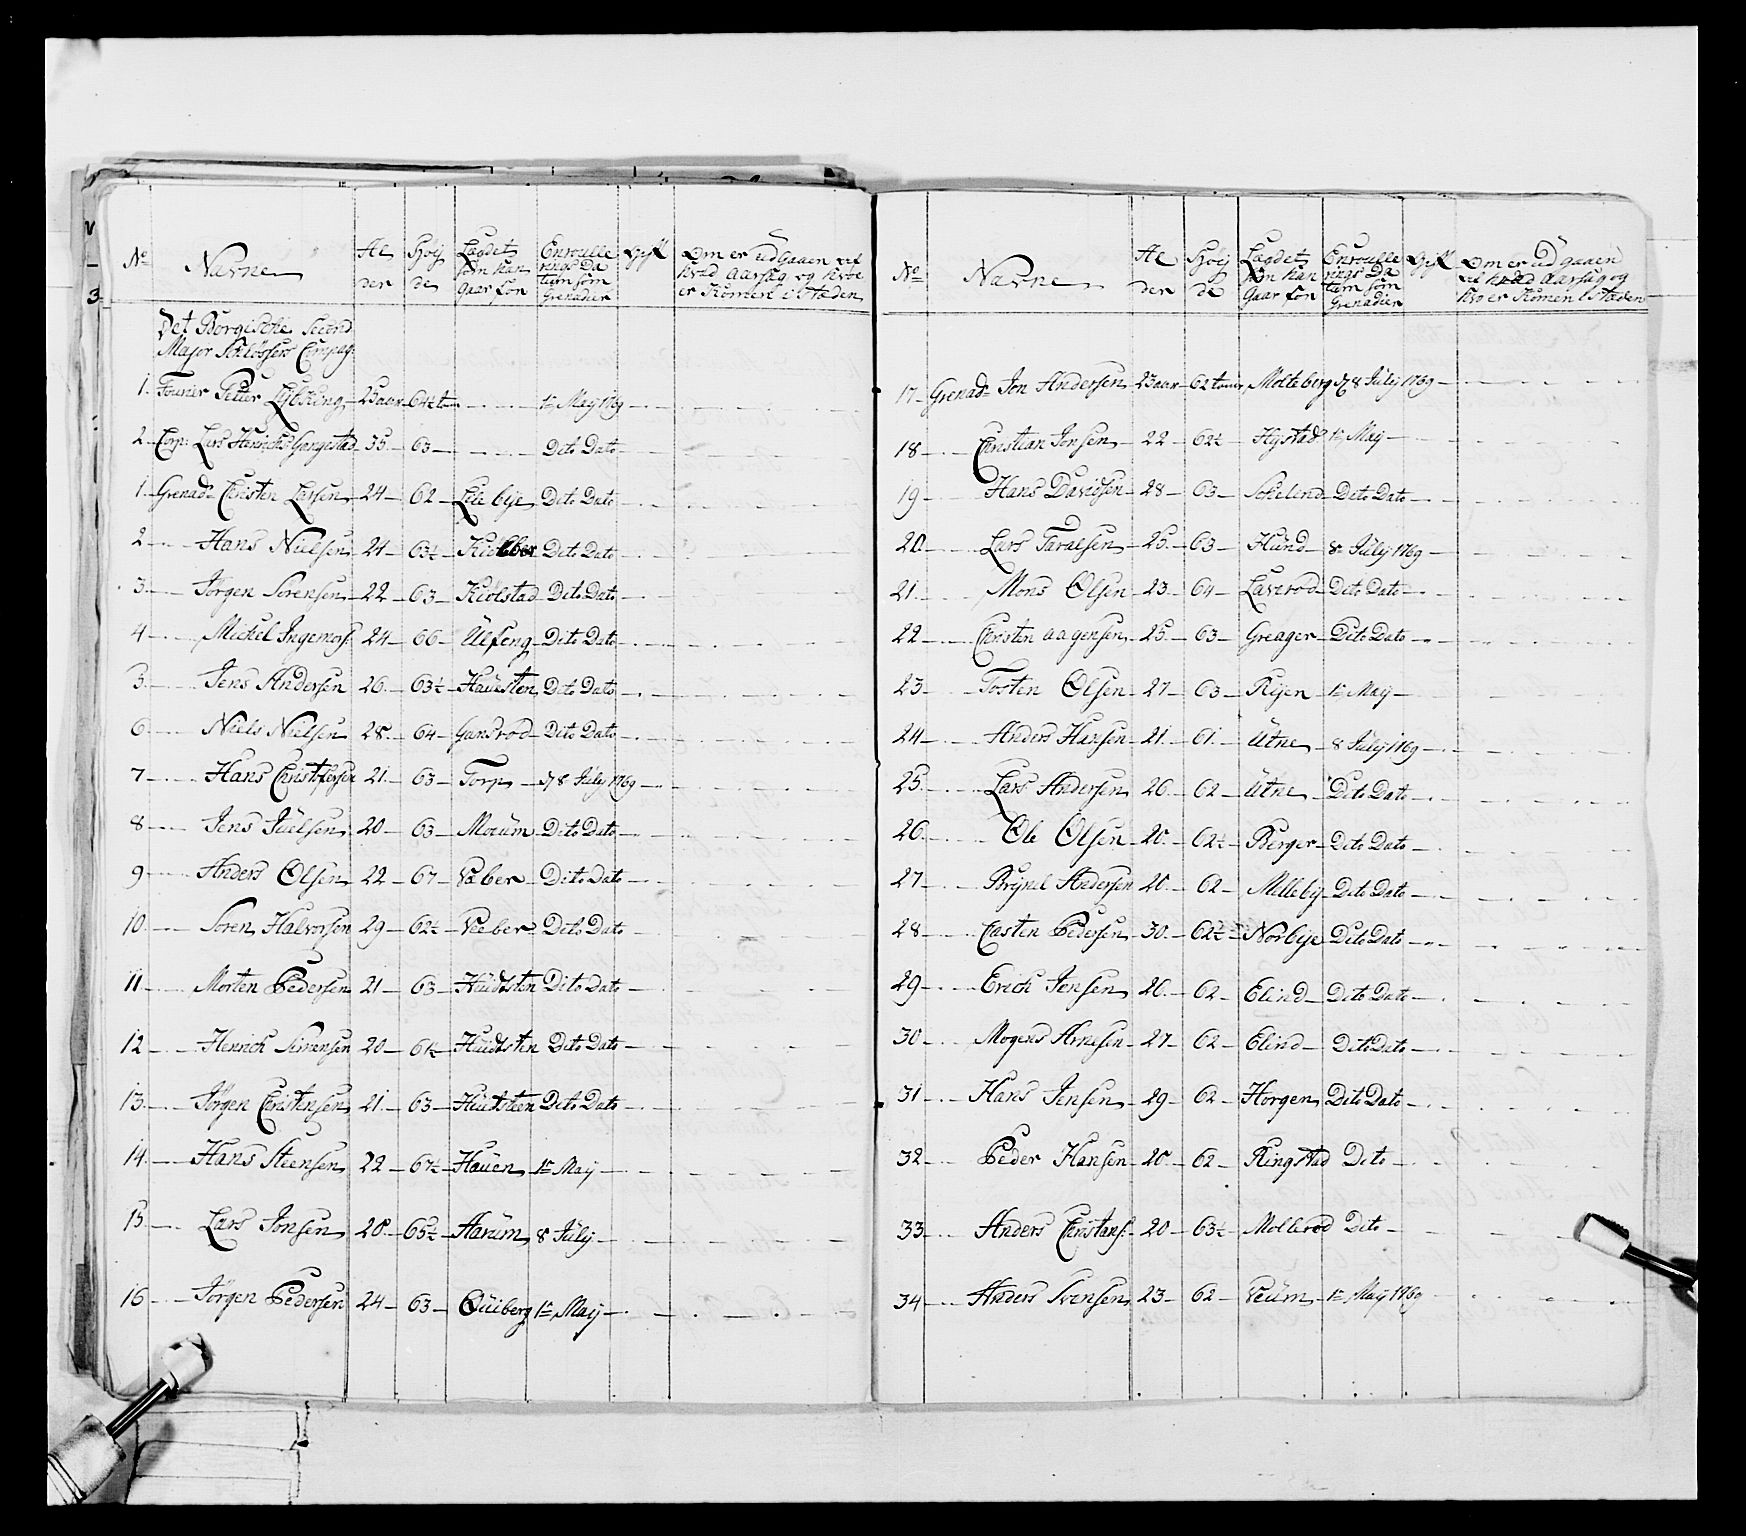 No Navne Al der Høy de Lægdet som han Gaar for Enroulle rings Da tum som Grenadier Gift Om er udgaaen ved hvad Aarsag og hvor er Komen i Stæden
Det Borgeske Secd
Major Schløssers Compag:
1. Fourier Petter Lybking 25 aar 64½ tom 1te Maij 1769
2 Corp: Lars Hanschs Gangestad 35 63 Dito Dato
1. Grenad: Christen Larsen 24 62 Lille bye Dito Dato
2 Hans Nielsen 24 63½ Kiölber Dito Dato
3 Jørgen Sørensen 22 63 Kiölstad Dito Dato
4 Mickel Ingemors: 24 66 Ulfeng Dito Dato
5 Jens Andersen 26 63½ Hauesten Dito Dato
6 Niels Nielsen 28 64 Gansrød Dito Dato
7 Hans Christophersen 21 63 Torp d 8 Julij 1769
8 Jens Juelsen 20 63 Moum Dito Dato
9 Anders Olsen 22 67 Væber Dito Dato
10 Søren Halvorsen 29 62½ Veeber Dito Dato
11 Morten Pedersen 21 63 Huidsten Dito Dato
12 Henrich Simensen 20 61½ Huidsten Dito Dato
13 Jørgen Christensen 21 63 Huidsteen Dito Dato
14 Hans Steensen 22 67½ Hauen 1te Maij
15 Lars Jonsen 28 65½ Aarum 8 Julij
16 Jørgen Pedersen 24 63 Quiberg 1te Maij
No Navne Al der Høy de Lægdet som han Gaar for Enroulle rings Da tum som Grenadier Gift Om er udgaaen ved hvad Aarsag og hvo er Komen i Stæden
17 Grenad: Jon Andersen 23 aar 62 tomr Molteberg d 8 Julij 1769
18 Christian Jonsen 22 62½ Hystad 1te Maij
19 Hans Davidsen 28 63 Dito Dato
20 Lars Taralsen 25 63 Hund 8 Julij 1769
21 Mons Olsen 23 64 Laverød Dito Dato
22 Christen Aagensen 25 63 Greager Dito Dato
23 Tosten Olsen 27 63 Rijen 1te Maij
24 Anders Hansen 21 61 Utne 8 Julij 1769
25 Lars Andersen 26 62 Utne Dito Dato
26 Ole Olsen 20 62½ Berger Dito Dato
27 Brynel Andersen 20 62 Melleby Dito Dato
28 Casten Pedersen 30 62½ Norbye Dito Dato
29 Erich Jensen 26 62 Elind Dito Dato
30 Mogens Arnesen 27 62 Elind Dito Dato
31 Hans Jensen 29 62 Horgen Dito Dato
32 Peder Hansen 20 62 Ringstad Dito
33 Anders Christans: 20 63½ Mollerød Dito
34 Anders Svensen 23 62 Veum 1te Maij 1769